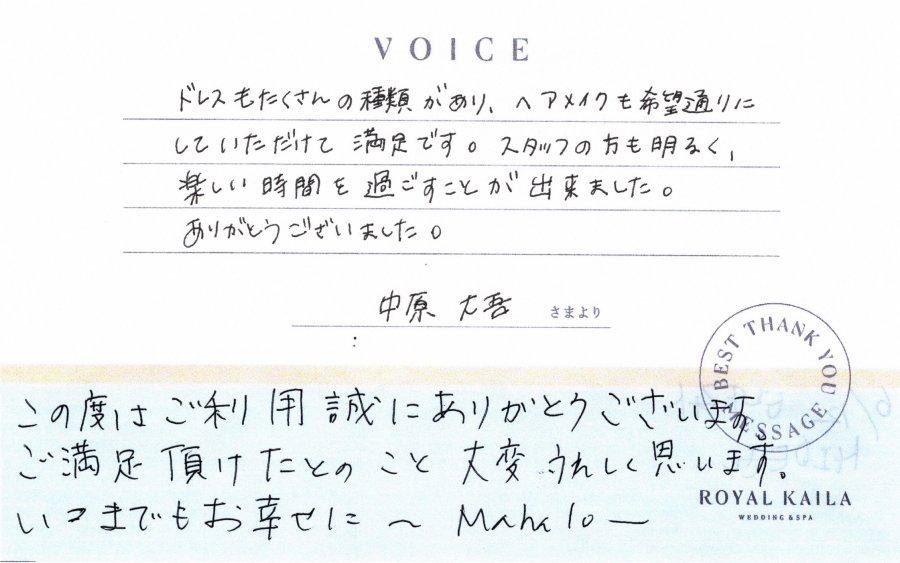 VOICE
ドレスもたくさんの種類があり、ヘアメイクも希望通りに
していただけて満足です。スタッフの方も明るく、
楽しい時間を過ごすことが出来ました。
ありがとうございました。
中原 大吾 さまより
BEST THANK YOU MESSAGE
この度はご利用誠にありがとうございます。
ご満足頂けたとのこと大変うれしく思います。
いつまでもお幸せに〜 Mahalo―
ROYAL KAILA
WEDDING & SPA